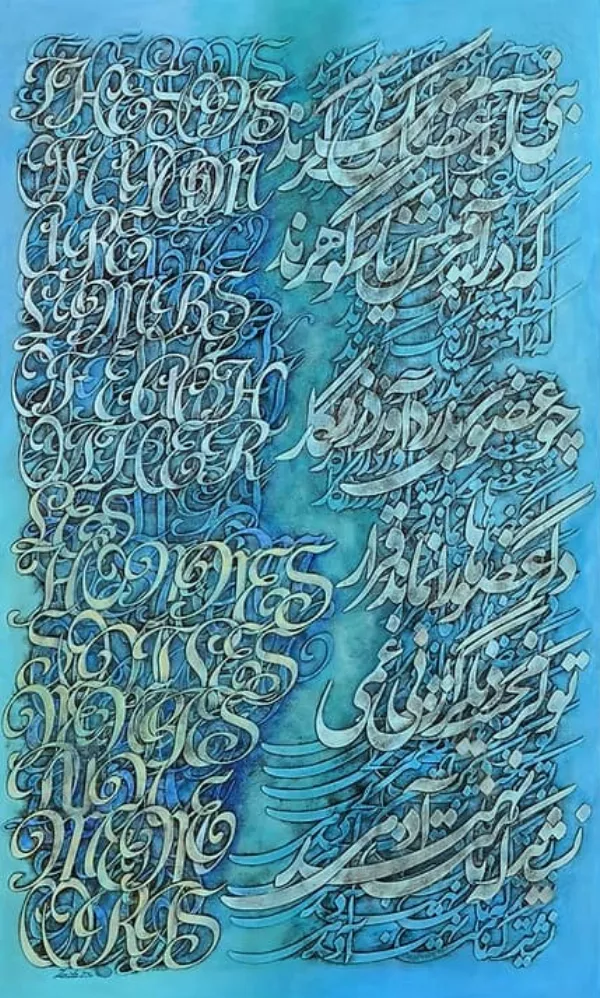 THE SONS
OF
ARE
LIMBS
OF EACH
OTHER
LES
HOMMES
SONT LES
MEME
CORPS
بنی آدم اعضای یکدیگرند
که در آفرینش ز یک گوهرند
چو عضوی بدرد آورد روزگار
دگر عضوها را نماند قرار
تو کز محنت دیگران بی غمی
نشاید که نامت نهند آدمی